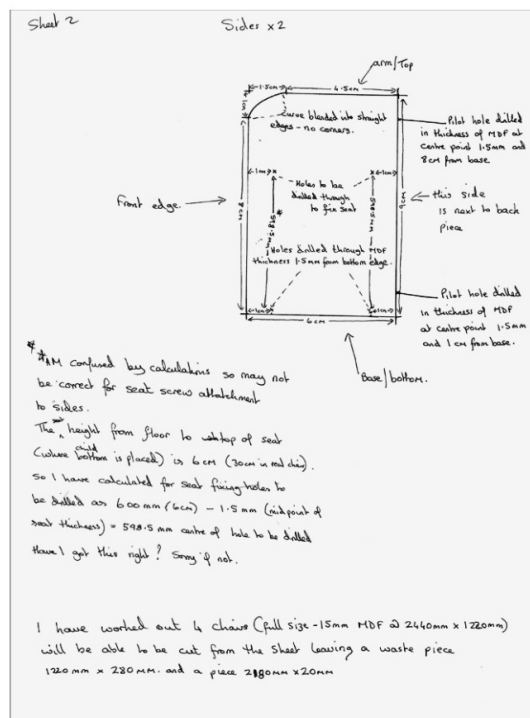 Sheet 2
Sides x2
arm/Top
1.5cm
4.5cm
1cm
Curve blended into straight
edges - no corners.
Pilot hole drilled
in thickness of MDF at
centre point 1.5mm and
8cm from base.
1cm
1cm
Holes to be
drilled through
to fix seat
Front edge
8cm
598.5mm
*
598.5mm
9cm
this side
is next to back
piece
Holes drilled through MDF
thickness 1.5mm from bottom edge.
1cm
1cm
6cm
Pilot hole drilled
in thickness of MDF
at centre point 1.5mm
and 1cm from base.
Base/bottom.
* *AM confused by calculations so may not
be correct for seat screw attatchment
to sides.
The seat height from floor to top of seat
(where child bottom is placed) is 6cm (30cm in real chair).
so I have calculated for seat fixing holes to
be drilled as 600mm (6cm) - 1.5mm (midpoint of
seat thickness) = 598.5mm centre of hole to be drilled
Have I got this right? Sorry if not.
I have worked out 4 chairs (full size - 15mm MDF @ 2440mm x 1220mm)
will be able to be cut from the sheet leaving a waste piece
1220mm x 280mm. and a piece 2180mm x 20mm